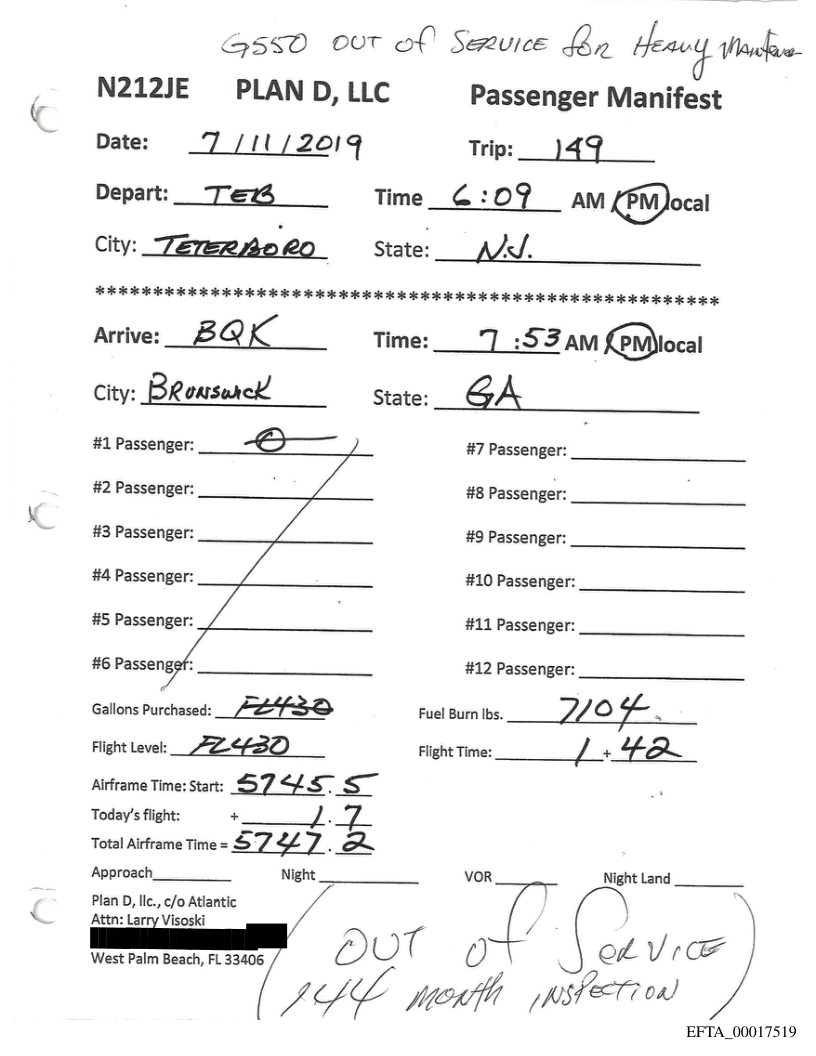 G550 OUT OF SERVICE for HEAVY
N212JE PLAN D, LLC Passenger Manifest
Date: 7/11/2019 Trip: 149
Depart: TEB Time 6:09 AM / PM local
City: TETERBORO State: N.J.
*******************************************************
Arrive: BQK Time: 7:53 AM / PM local
City: BRUNSWICK State: GA
#1 Passenger: 0 #7 Passenger:
#2 Passenger: #8 Passenger:
#3 Passenger: #9 Passenger:
#4 Passenger: #10 Passenger:
#5 Passenger: #11 Passenger:
#6 Passenger: #12 Passenger:
Gallons Purchased: FL430 Fuel Burn lbs. 7104
Flight Level: FL430 Flight Time: 1 + 42
Airframe Time: Start: 5745.5
Today's flight: + 1.7
Total Airframe Time = 5747.2
Approach Night VOR Night Land
Plan D, llc., c/o Atlantic
Attn: Larry Visoski
West Palm Beach, FL 33406
(OUT of SERVICE
144 MONTH INSPECTION)
EFTA_00017519